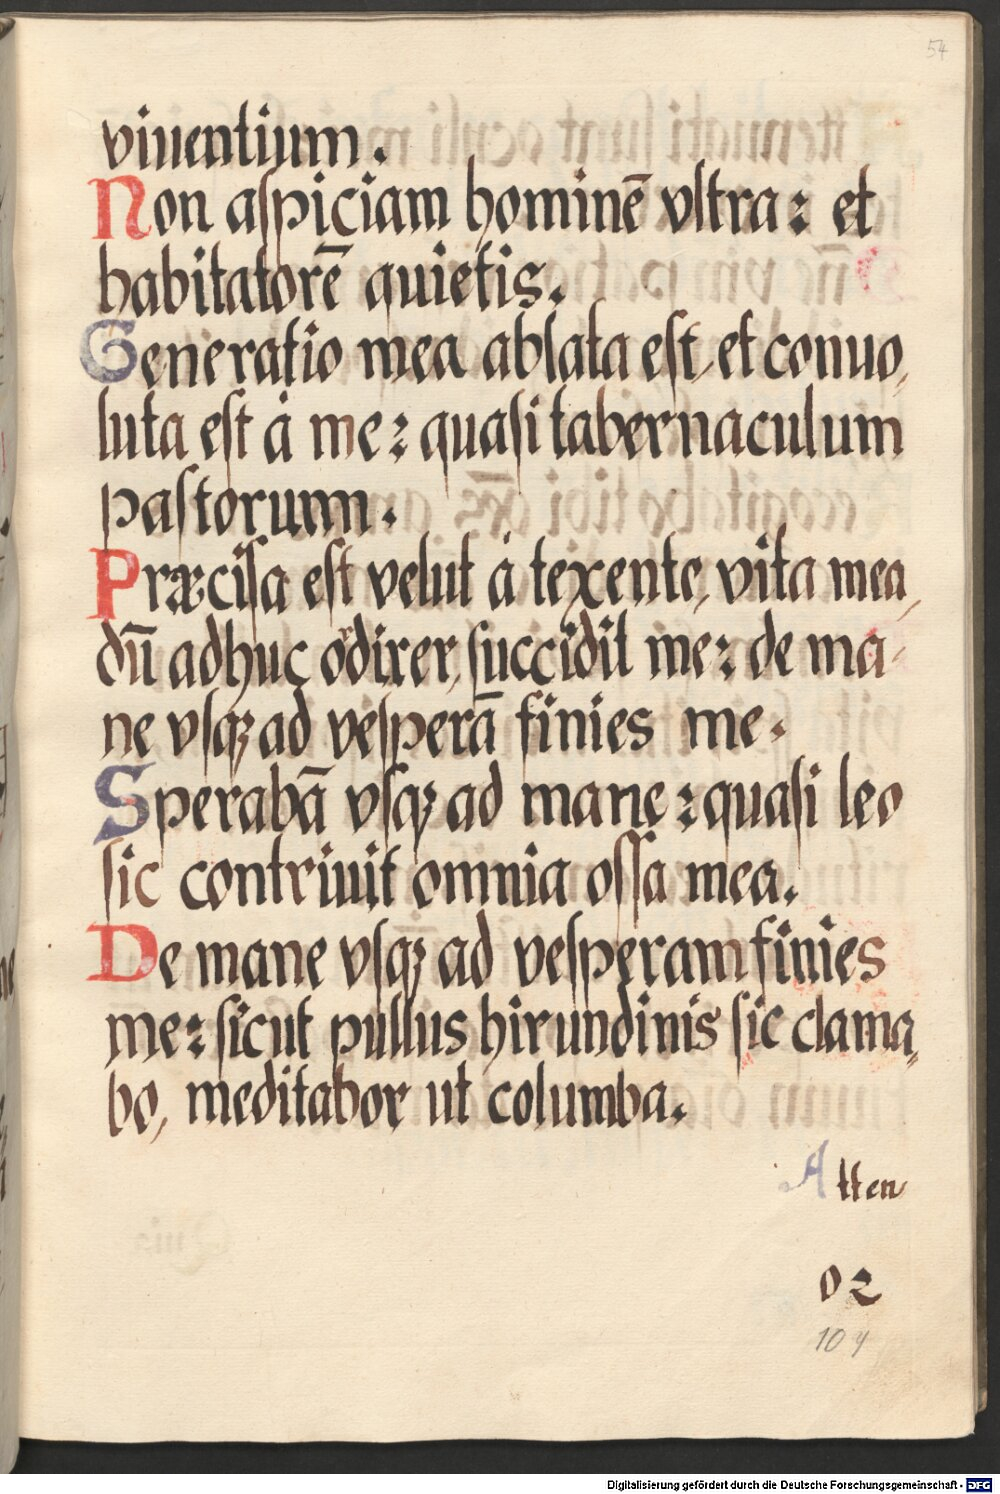 54
viuentium.
Non aspiciam hominē vltra: et
habitatorē quietis.
Generatio mea ablata est, et conuo,
luta est à me: quasi tabernaculum
pastorum.
Præcisa est velut à texente, vita mea,
dū adhuc ordirer, succidit me: de ma-
ne vsq; ad vesperā finies me.
Sperabā vsq; ad mane: quasi leo
sic contriuit omnia ossa mea.
De mane vsq; ad vesperam finies
me: sicut pullus hirundinis sic clama,
bo, meditabor ut columba.
Atten
02
104
Digitalisierung gefördert durch die Deutsche Forschungsgemeinschaft - DFG